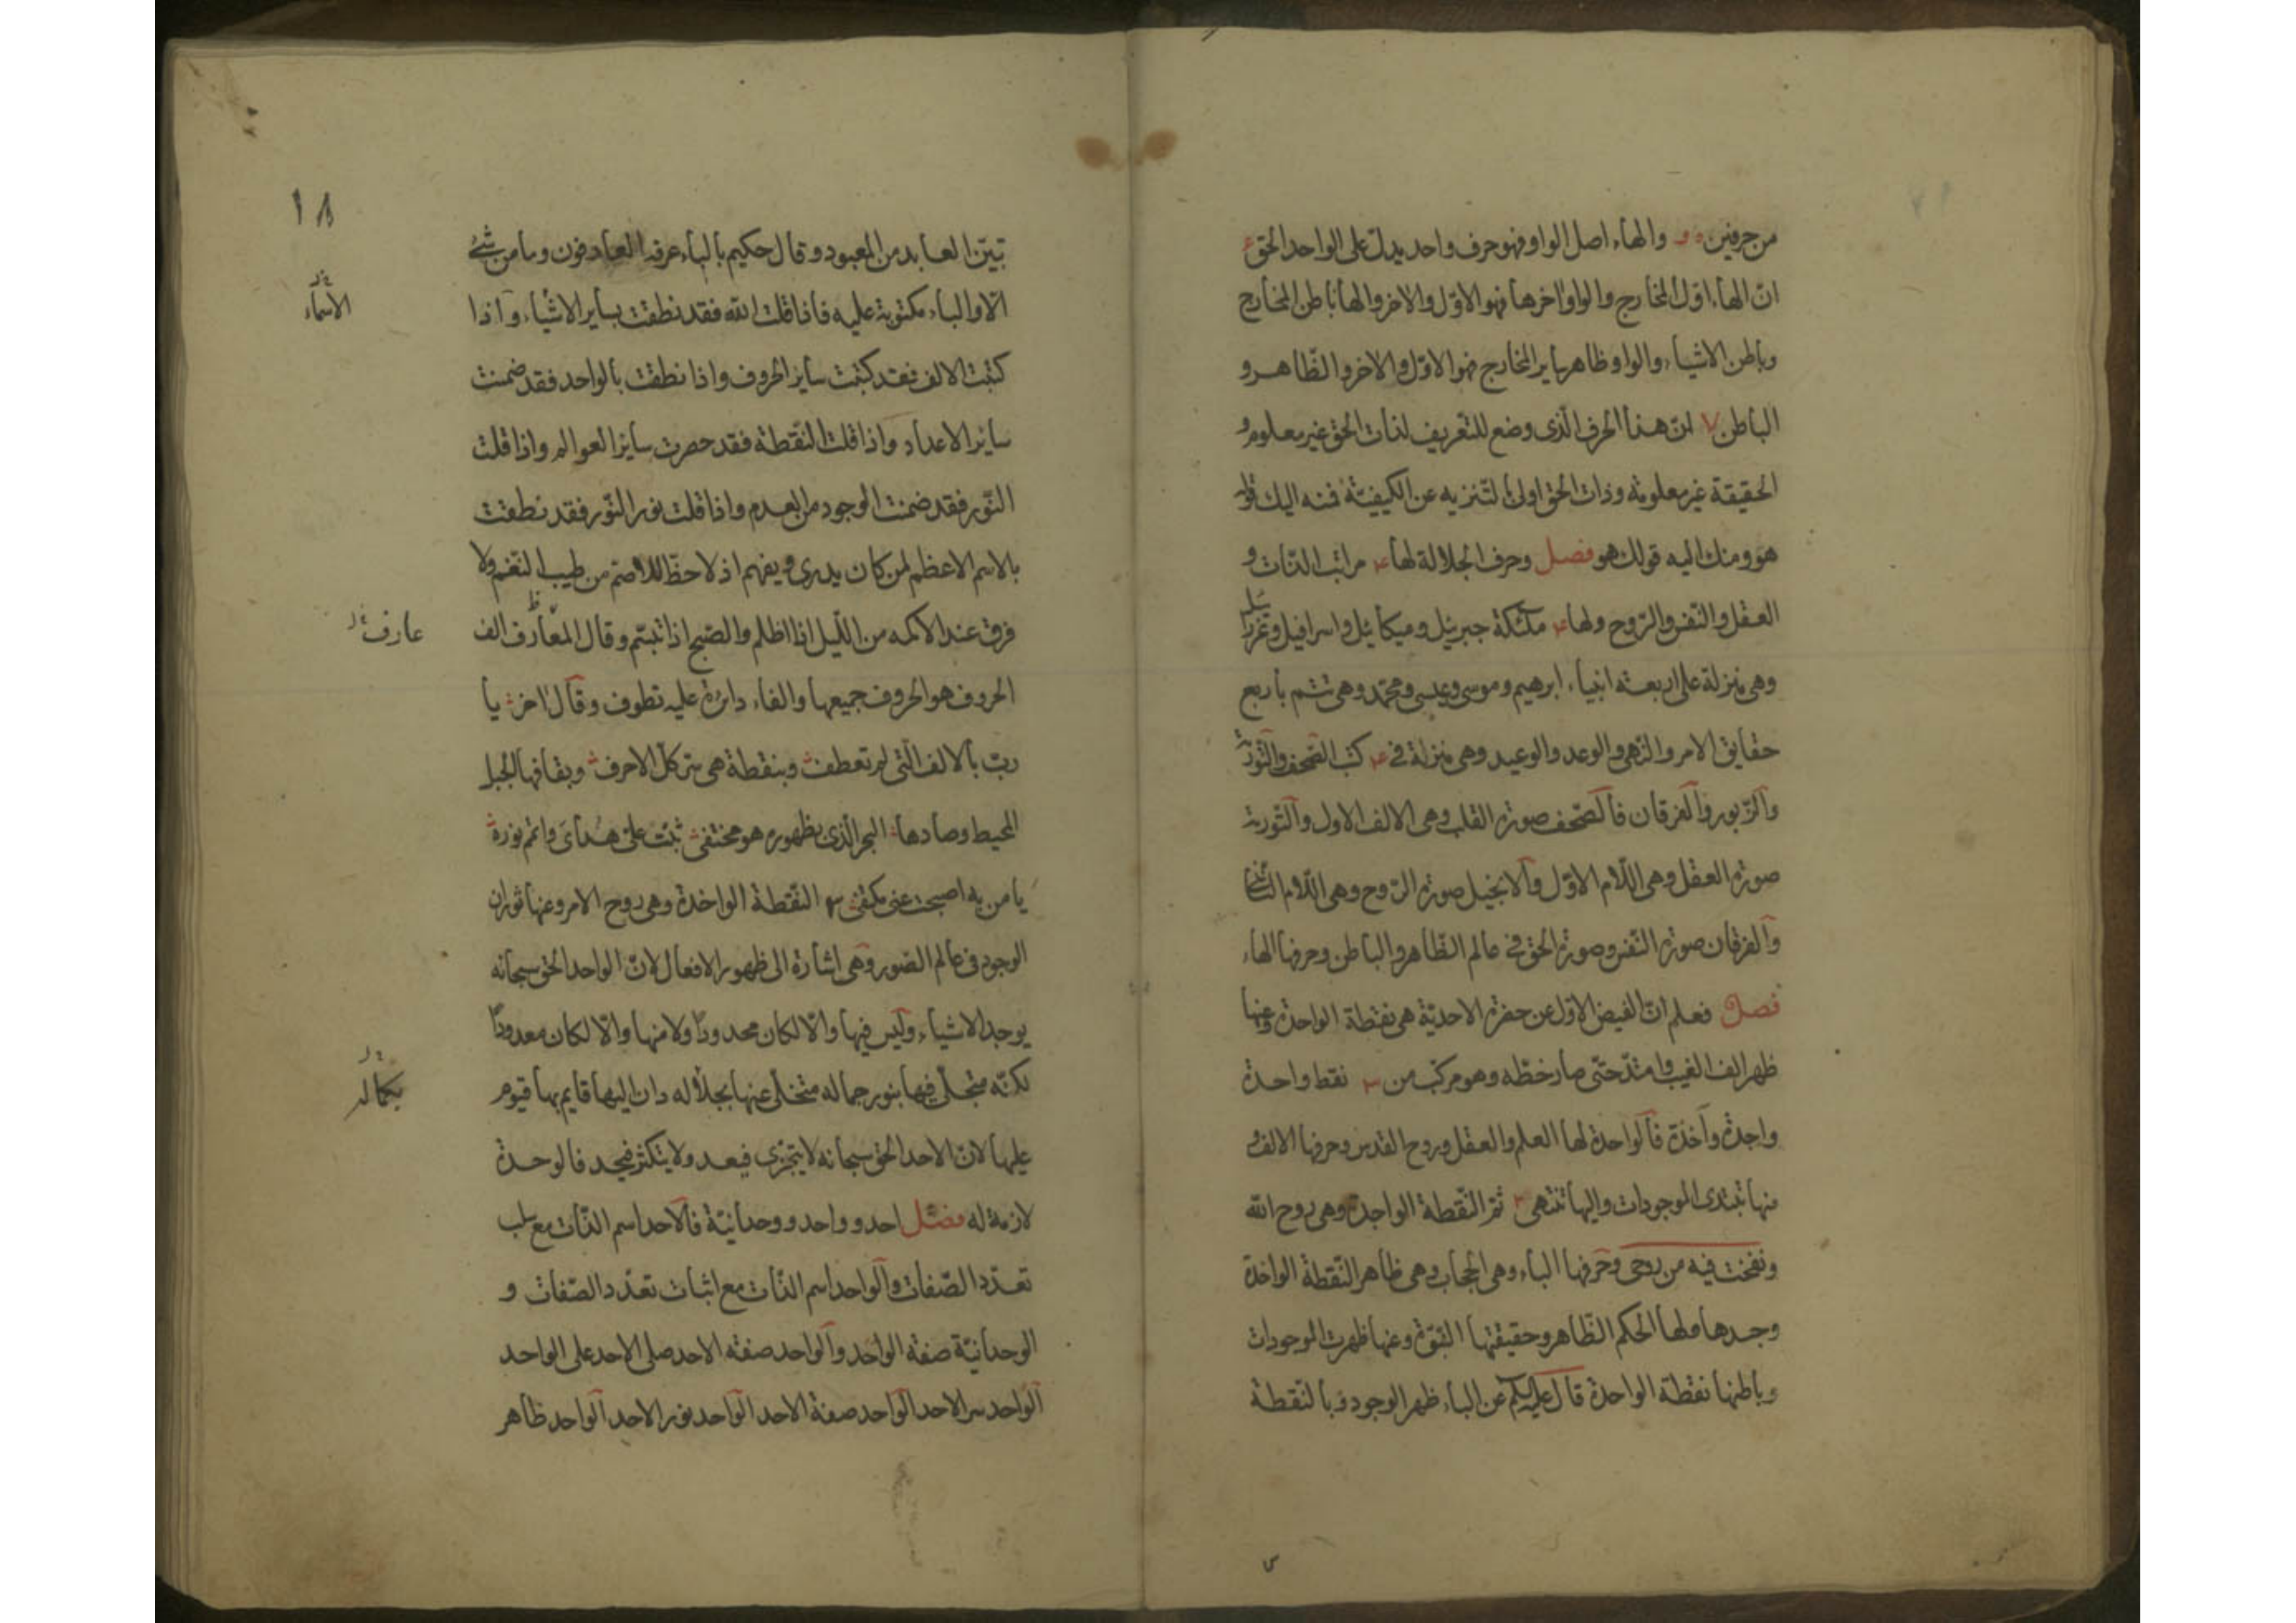 من حرفين ه و والهاء اصل الواو فهو حرف واحد يدل على الواحد الحق
ان الهاء اول المخارج والواو اخرها فهو الاول والاخر والها باطن المخارج
وباطن الاشياء والواو ظاهر ساير المخارج فهو الاول والاخر والظاهر و
الباطن ٧ ان هذا الحرف الذى وضع للتعريف لذات الحق غير معلوم و
الحقيقة غير معلومة وذات الحق اولى لتنزيه عن الكيفيّة فمنه اليك قوله
هو ومنك اليه قولك هو فصل وحرف الجلالة لها ۴ مراتب الذات و
العقل والنفس والروح ولها ۴ ملئكة جبريئل وميكائيل واسرافيل وعزرائيل
وهى منزلة على اربعة انبياء ابرهيم وموسى وعيسى ومحمد وهى تتم باربع
حقايق الامر والنهى والوعد والوعيد وهى منزلة فى ۴ كتب الصحف والتورية
والزبور والفرقان فالصحف صورة القلب وهى الالف الاول والتورية
صورة العقل وهى اللام الاول والانجيل صورة الروح وهى اللام الثانى
والفرقان صورة النفس وصورة الحق فى عالم الظاهر والباطن وحرفها الهاء
فصل فعلم ان الفيض الاول عن حضرة الاحديّة هى نقطة الواحدة وعنها
ظهر الف الغيب وامتد حتى صار خطه وهو مركب من ۳ نقط واحدة
واجدة وآخذة فالواحدة لها العلم والعقل وروح القدس وحرفها الالف و
منها تبتدى الموجودات واليها تنتهى ۲ ثم النقطة الواجدة وهى روح الله
ونفخت فيه من روحى وحرفها الباء وهى الحجاب وهى ظاهر النقطة الواحدة
وجدها ولها الحكم الظاهر وحقيقتها النبوّة وعنها ظهرت الموجودات
وباطنها نقطة الواحدة قال عليه السلام عن الباء ظهر الوجود وبالنقطة
١٨
تبيّن العابد من المعبود وقال حكيم بالباء عرفه العارفون وما من شئ
الا والباء مكتوبة عليه فاذا قلت الله فقد نطقت بساير الاشياء واذا
الاسماء
كتبت الالف فقد كتبت ساير الحروف واذا نطقت بالواحد فقد ضمنت
ساير الاعداد واذا قلت النقطة فقد حصرت ساير العوالم واذا قلت
النور فقد ضمنت الوجود من العدم واذا قلت نور النور فقد نطقت
بالاسم الاعظم لمن كان يدرى ويفهم اذ لا حظ للاصم من طيب النغم ولا
فرق عند الاكمه من الليل اذا اظلم والصبح اذا تبسم وقال المعارف الف
عارف
الحروف هو الحروف جميعها والفاء دائرة عليه تطوف وقال اخر يا
رب بالالف التى لم تعطف وبنقطة هى سر كل الاحرف وبقافها الجبل
المحيط وصادها البحر الذى بظهوره هو مختفى ثبت على هداى واتم نوره
يا من به اصبحت عنى مكتفى ۳ النقطة الواخذة وهى روح الامر وعنها ثوران
الوجود فى عالم الصور وهى اشارة الى ظهور الافعال لان الواحد الحق سبحانه
يوجد الاشياء وليس فيها والا لكان محدودا ولا منها والا لكان معدودا
لكنه متجلى فيها بنور جماله متخلى عنها بجلاله دان اليها قايم بها قيوم
بكماله
عليها لان الاحد الحق سبحانه لا يتجزى فيعد ولا يتكثر فيحد فالوحدة
لازمة له فصل احد وواحد ووحدانيّة فالاحد اسم الذات مع سلب
تعدد الصفات والواحد اسم الذات مع اثبات تعدد الصفات و
الوحدانيّة صفة الواحد والواحد صفته الاحد صلى الاحد على الواحد
الواحد سر الاحد الواحد صفة الاحد الواحد نور الاحد الواحد ظاهر